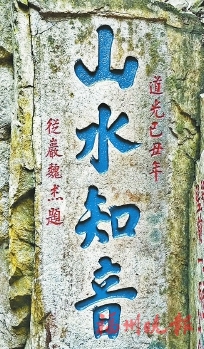 道光己丑年
山水知音
從巖魏杰題
福州晚报